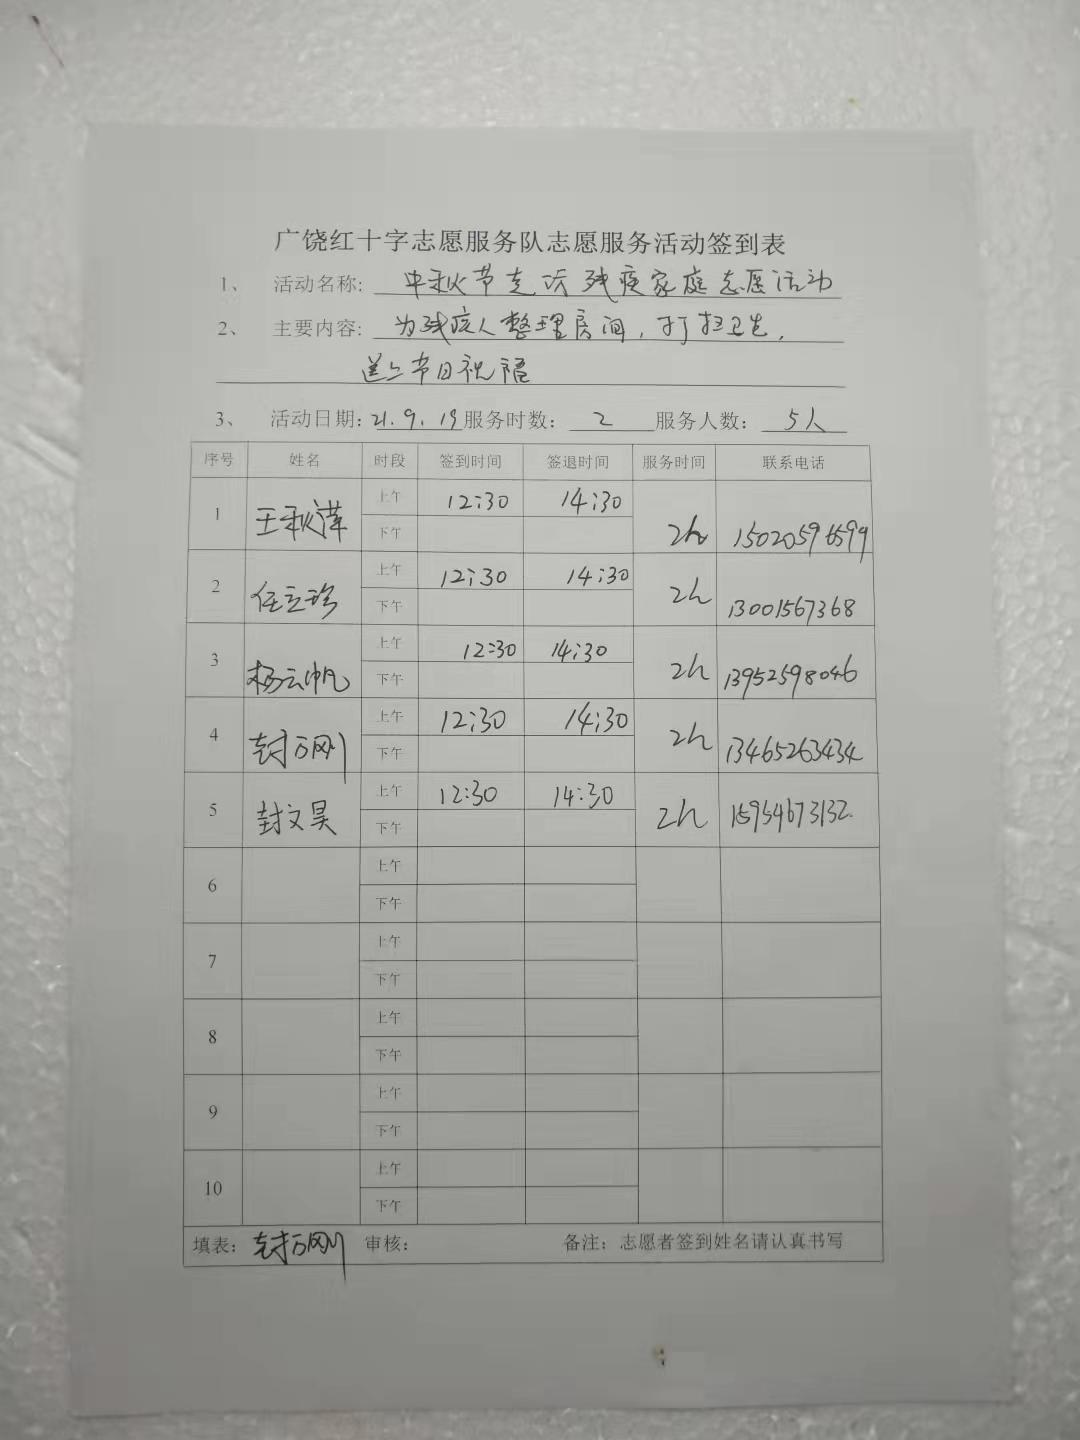 广饶红十字志愿服务队志愿服务活动签到表
1、 活动名称: 中秋节走访残疾家庭志愿活动
2、 主要内容: 为残疾人整理房间，打扫卫生，
送上节日祝福
3、 活动日期: 21.9.19 服务时数: 2 服务人数: 5人
序号 姓名 时段 签到时间 签退时间 服务时间 联系电话
1 王秋萍 上午 12:30 14:30 2h
下午
2 任立珍 上午 12:30 14:30 2h 13001567368
下午
3 杨云帆 上午 12:30 14:30 2h 13952598046
下午
4 封万刚 上午 12:30 14:30 2h 13465263434
下午
5 封文昊 上午 12:30 14:30 2h 15954673132
下午
6 上午
下午
7 上午
下午
8 上午
下午
9 上午
下午
10 上午
下午
填表: 封万刚 审核: 备注: 志愿者签到姓名请认真书写